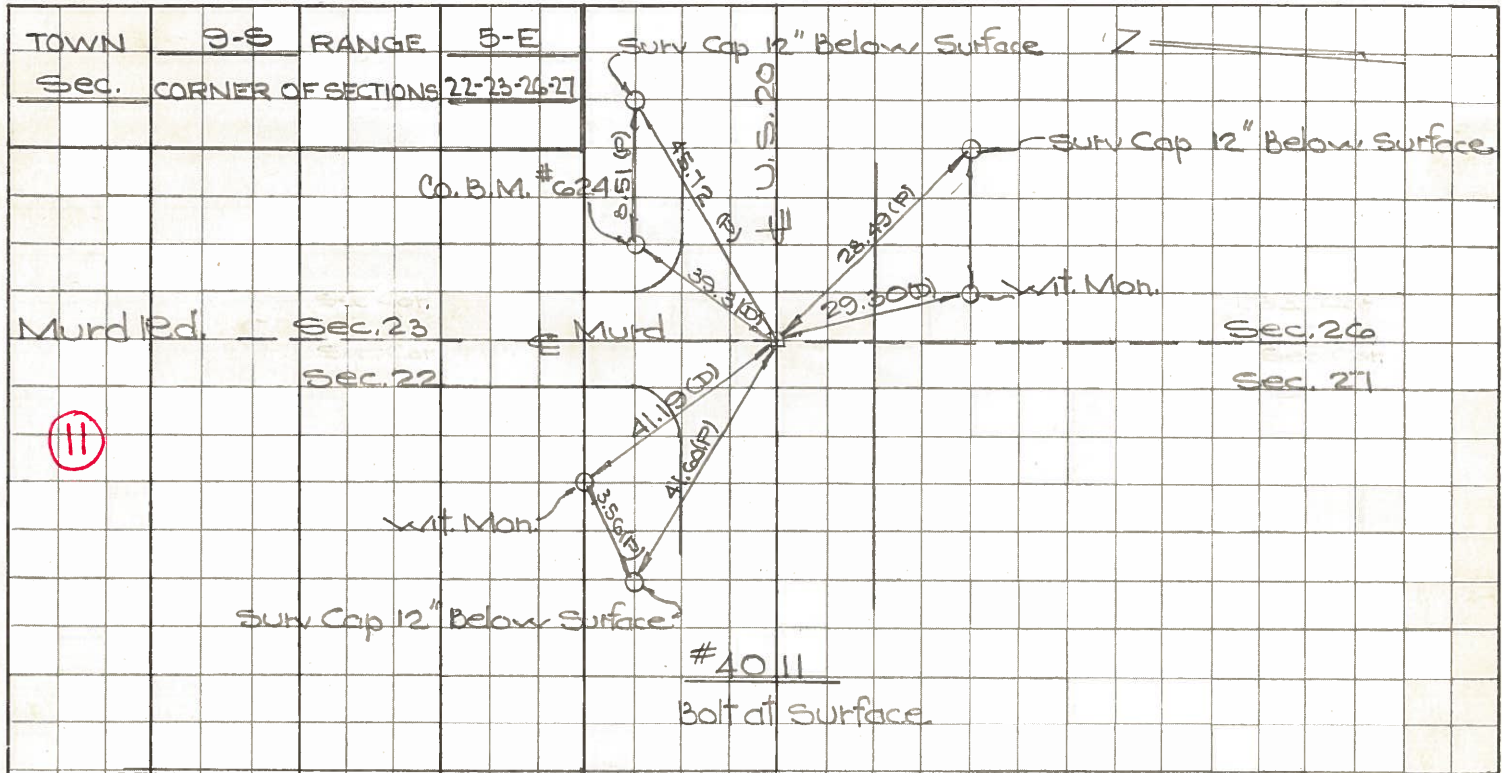 TOWN 9-S RANGE 5-E
Sec. CORNER OF SECTIONS 22-23-26-27
Surv Cap 12" Below Surface
N
U.S. 20
℄
Surv Cap 12" Below Surface
Co. B.M. #624
8.51 (P)
45.72 (P)
28.49 (P)
39.31(D)
29.30(D)
Wit. Mon.
Murd Rd. Sec. 23 ℄ Murd Sec. 26
Sec. 22 Sec. 27
11
41.19(D)
41.60(P)
Wit. Mon.
3.56(P)
Surv Cap 12" Below Surface
#40 11
Bolt at Surface